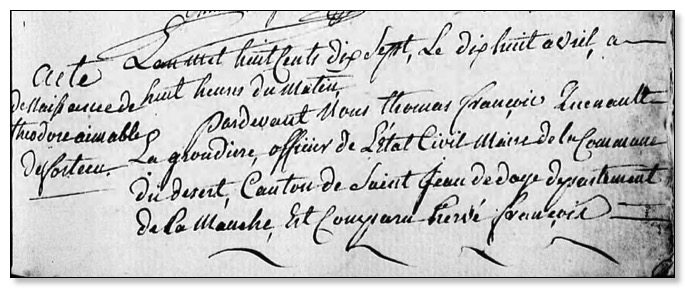 L'an mil huit cents dix Sept, Le dix huit avril, a
huit heures du Matin,
acte
de Naissance de
theodore aimable
Desforteau.
Pardevant Nous thomas françois Quenault
La groudiere, officier de L'Etat Civil Maire de la Commune
du desert, Canton de Saint Jean de daye departement
de la Manche, Est Comparu hervé françois